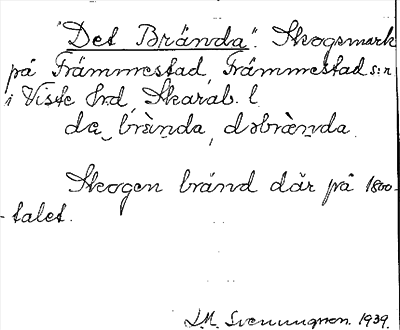 "Det Brända". Skogsmark
på Främmestad, Främmestad s:n
i Viste hrd, Skarab. l.
dæ brànda, dəbrànda
Skogen bränd där på 1800-
-talet.
J.M. Svenungson. 1939.